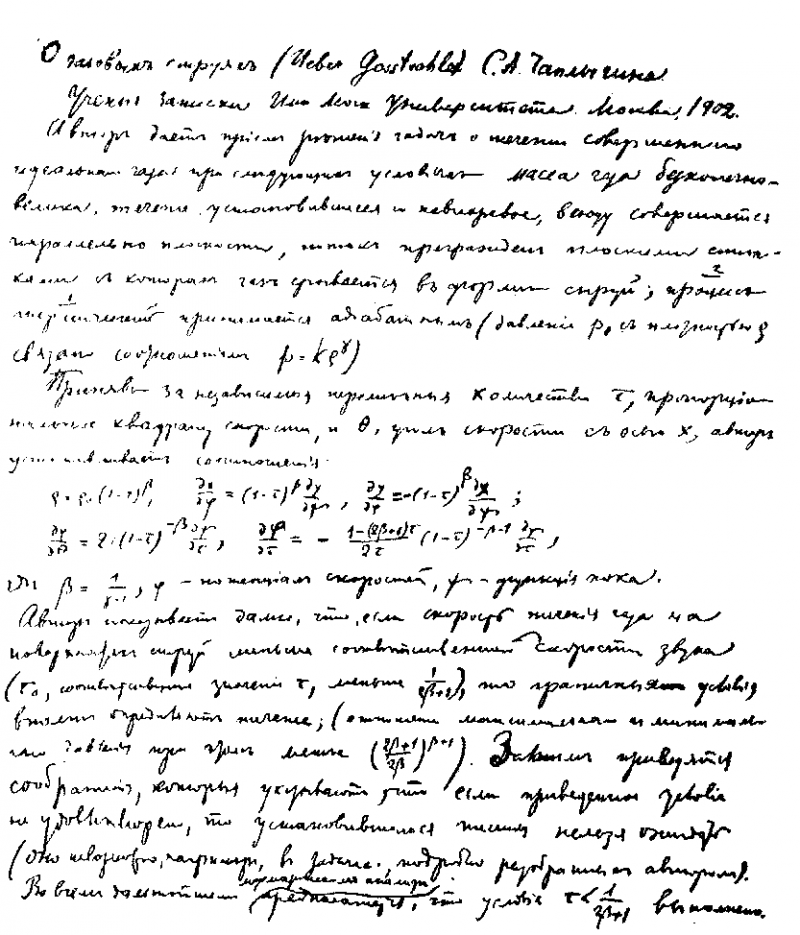 О газовыхъ струяхъ (Ueber Gasstrahlen) С.А. Чаплыгина
Ученыя Записки Имп Моск Университета. Москва, 1902.
Авторъ даетъ пріемъ рѣшенія задачъ о теченіи совершеннаго
идеальнаго газа при слѣдующихъ условіяхъ масса газа безконечно-
велика, теченіе установившееся и невихревое, всюду совершается
параллельно плоскости, потокъ прегражденъ плоскими стѣн-
ками съ которыхъ газъ срывается въ формѣ струй; процессъ
термическій принимается адіабатнымъ (давленіе p, съ плотностью ρ
связано соотношеніемъ p = kρ^γ)
Принявъ за независимыя перемѣнныя количества τ, пропорціо-
нальное квадрату скорости, и θ, уголъ скорости съ осью X, авторъ
устанавливаетъ соотношенія
ρ = ρ₀ (1-τ)^β, ∂x/∂φ = (1-τ)^β ∂y/∂ψ, ∂y/∂φ = -(1-τ)^β ∂x/∂ψ;
∂φ/∂θ = 2τ(1-τ)^{-β} ∂ψ/∂τ, ∂φ/∂τ = - (1-(2β+1)τ)/2τ (1-τ)^{-β-1} ∂ψ/∂θ,
гдѣ β = 1/(γ-1), φ - потенціалъ скоростей, ψ - функція тока.
Авторъ показываетъ далѣе, что, если скорость теченія газа на
поверхности струй меньше соотвѣтственной скорости звука
(τ₀, соотвѣтственное значеніе τ, меньше 1/(2β+1)), то граничныя условія
вполнѣ опредѣляютъ теченіе; (отношеніе максимальнаго и минималь-
наго давленія при этомъ менѣе ((2β+1)/2β)^{β+1}). Затѣмъ приводятся
соображенія, которыя указываютъ, что если приведенное условіе
не удовлетворено, то установившагося теченія нельзя ожидать
(оно невозможно, напримѣръ, въ задачѣ подробно разобранной авторомъ).
Во всемъ дальнѣйшемъ предполагается, что условіе τ < 1/(2β+1) выполнено.